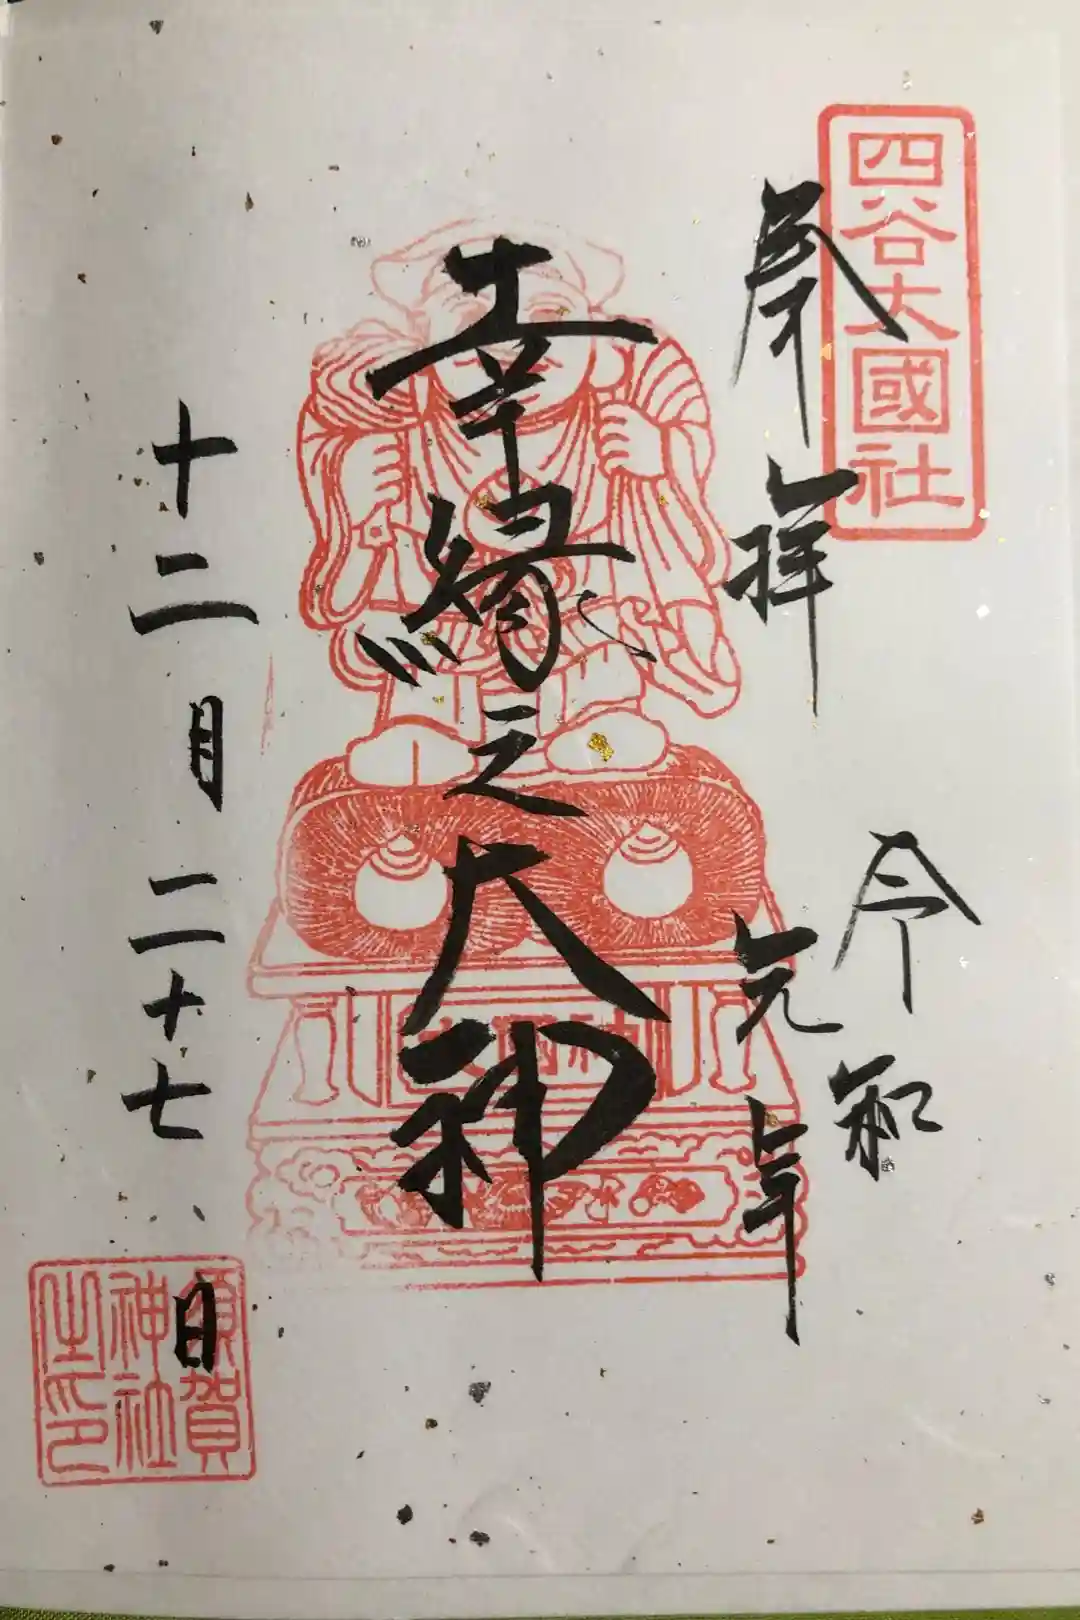 四谷大國社
奉拝
令和
元年
幸縁之大神
大國神
十二月二十七日
須賀
神社
之印